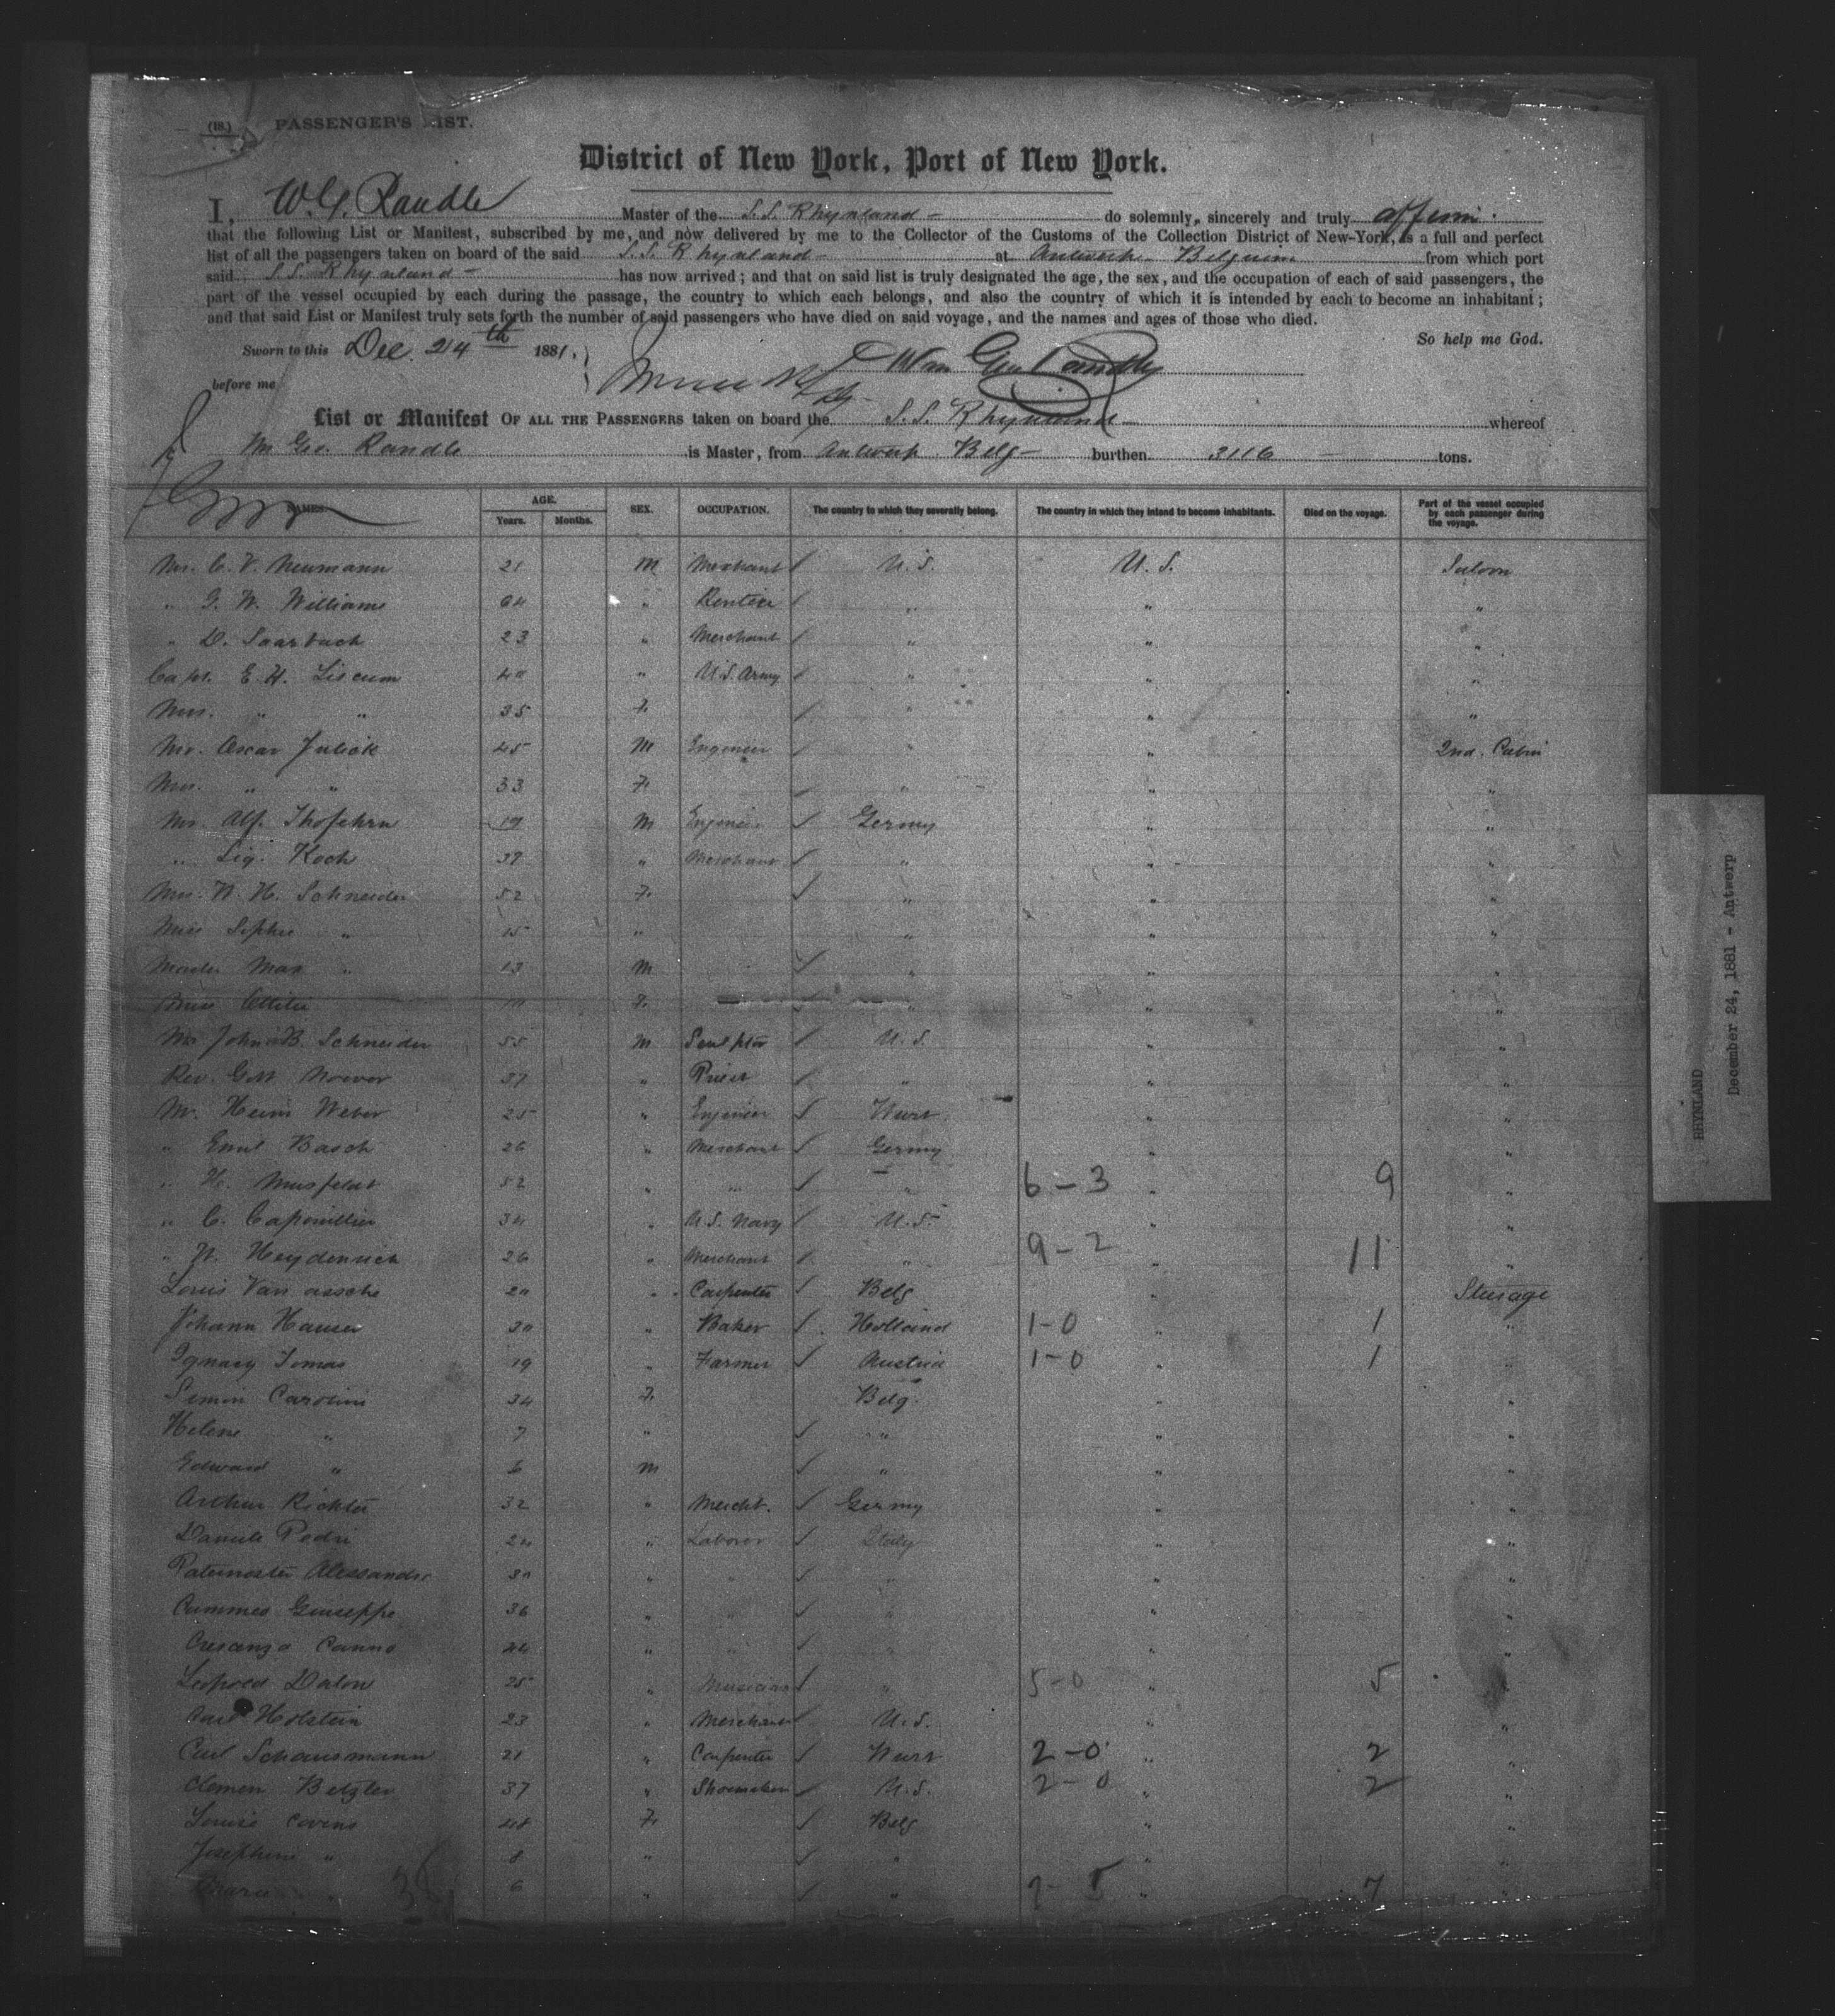 (18.) PASSENGER'S LIST.
District of New York, Port of New York.
I, W.G. Randle Master of the S.S. Rhynland - do solemnly, sincerely and truly affirm
that the following List or Manifest, subscribed by me, and now delivered by me to the Collector of the Customs of the Collection District of New-York, is a full and perfect
list of all the passengers taken on board of the said S.S. Rhynland - at Antwerp Belgium from which port
said S.S. Rhynland - has now arrived; and that on said list is truly designated the age, the sex, and the occupation of each of said passengers, the
part of the vessel occupied by each during the passage, the country to which each belongs, and also the country of which it is intended by each to become an inhabitant;
and that said List or Manifest truly sets forth the number of said passengers who have died on said voyage, and the names and ages of those who died.
So help me God.
Sworn to this Dec. 24th 1881.
before me
List or Manifest OF ALL THE PASSENGERS taken on board the S.S. Rhynland - whereof
Geo. Randle is Master, from Antwerp Belg - burthen 3116 - tons.
NAMES. AGE. Years. Months. SEX. OCCUPATION. The country to which they severally belong. The country in which they intend to become inhabitants. Died on the voyage. Part of the vessel occupied by each passenger during the voyage.
Mr. C. V. Neumann 21 M Merchant U.S. U.S. Saloon
" G. W. Williams 64 " Rentier " " "
" D. Saarbach 23 " Merchant " " "
Capt. E. H. Liscum 40 " U.S. Army " " "
Mrs. " " 35 F. " " "
Mr. Oscar 45 M Engineer " " 2nd. Cabin
Mrs. " " 33 F. " " "
Mr. Alf. Thofehrn 19 M Engineer Germy " "
" Sig. Koch 37 " Merchant " " "
Mrs. W. H. Schneider 52 F. " " "
Miss Sophie " 15 " " " "
Master Max " 13 M " " "
Miss F. " " "
Mr John B. Schneider 55 M Sculptor U.S. " "
Rev. 37 " Priest " " "
Mr. Heinr Weber 25 " Engineer Wurt " "
" Emil Basch 26 " Merchant Germy " "
" H. Musfeldt 52 " " " 6-3 " 9 "
" C. Capouillier 34 " U.S. Navy U.S. " "
" W. Heydenrich 26 " Merchant " 9-2 " 11 "
Louis Van assche 20 " Carpenter Belg " Steerage
Johann Hauser 30 " Baker Holland 1-0 " 1 "
Ignacy Tomas 19 " Farmer Austria 1-0 " 1 "
Simon Caroline 34 F. Belg. " "
Helene " 7 " " " "
Edward " 6 M " " "
Arthur Richter 32 " Mercht. Germy " "
Daniele Pedri 24 " Laborer Italy " "
Paternoster Alessandro 30 " " " " "
Cammes Giuseppe 36 " " " " "
Crescenzo Canno 44 " " " " "
Leopold Dalon 25 " Musician " 5-0 " 5 "
Carl Holstein 23 " Merchant U.S. " "
Carl Schausmann 21 " Carpenter Wurt 2-0 " 2 "
Clemen Betzler 37 " Shoemaker U.S. 2-0 " 2 "
Louise Covins 48 F. Belg " "
Josephine " 8 " " " "
Marie " 6 " " 2-5 " 7 "
RHYNLAND
December 24, 1881 - Antwerp